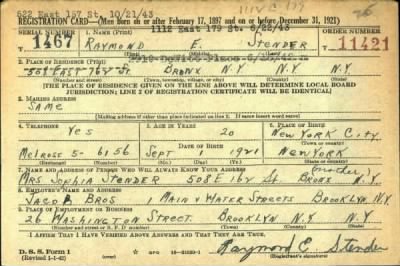 522 East 157 St. 10/21/43
1112 East 179 St. 6/22/43
REGISTRATION CARD—(Men born on or after February 17, 1897 and on or before December 31, 1921)
SERIAL NUMBER 1. NAME (Print) ORDER NUMBER
1467 RAYMOND E STENDER 11421
(First) (Middle) (Last)
2. PLACE OF RESIDENCE (Print)
508 EAST 162 St BRONX N.Y. N.Y
(Number and street) (Town, township, village, or city) (County) (State)
[THE PLACE OF RESIDENCE GIVEN ON THE LINE ABOVE WILL DETERMINE LOCAL BOARD
JURISDICTION; LINE 2 OF REGISTRATION CERTIFICATE WILL BE IDENTICAL]
3. MAILING ADDRESS
SAME
[Mailing address if other than place indicated on line 2. If same insert word same]
4. TELEPHONE 5. AGE IN YEARS 6. PLACE OF BIRTH
Yes 20 NEW YORK CITY
DATE OF BIRTH
MELROSE 5- 6156 SEPT 1 1921 NEW YORK
7. NAME AND ADDRESS OF PERSON WHO WILL ALWAYS KNOW YOUR ADDRESS
(mother)
MRS SOPHIA STENDER 508 E 162 St BRONX N.Y.
8. EMPLOYER'S NAME AND ADDRESS
JACOB BROS 1 MAIN & WATER STREETS BROOKLYN N.Y.
9. PLACE OF EMPLOYMENT OR BUSINESS
26 WASHINGTON STREET BROOKLYN N.Y. N.Y
I AFFIRM THAT I HAVE VERIFIED ABOVE ANSWERS AND THAT THEY ARE TRUE.
D. S. S. Form 1
(Revised 1-1-42) (over)
Raymond E. Stender
(Registrant's signature)